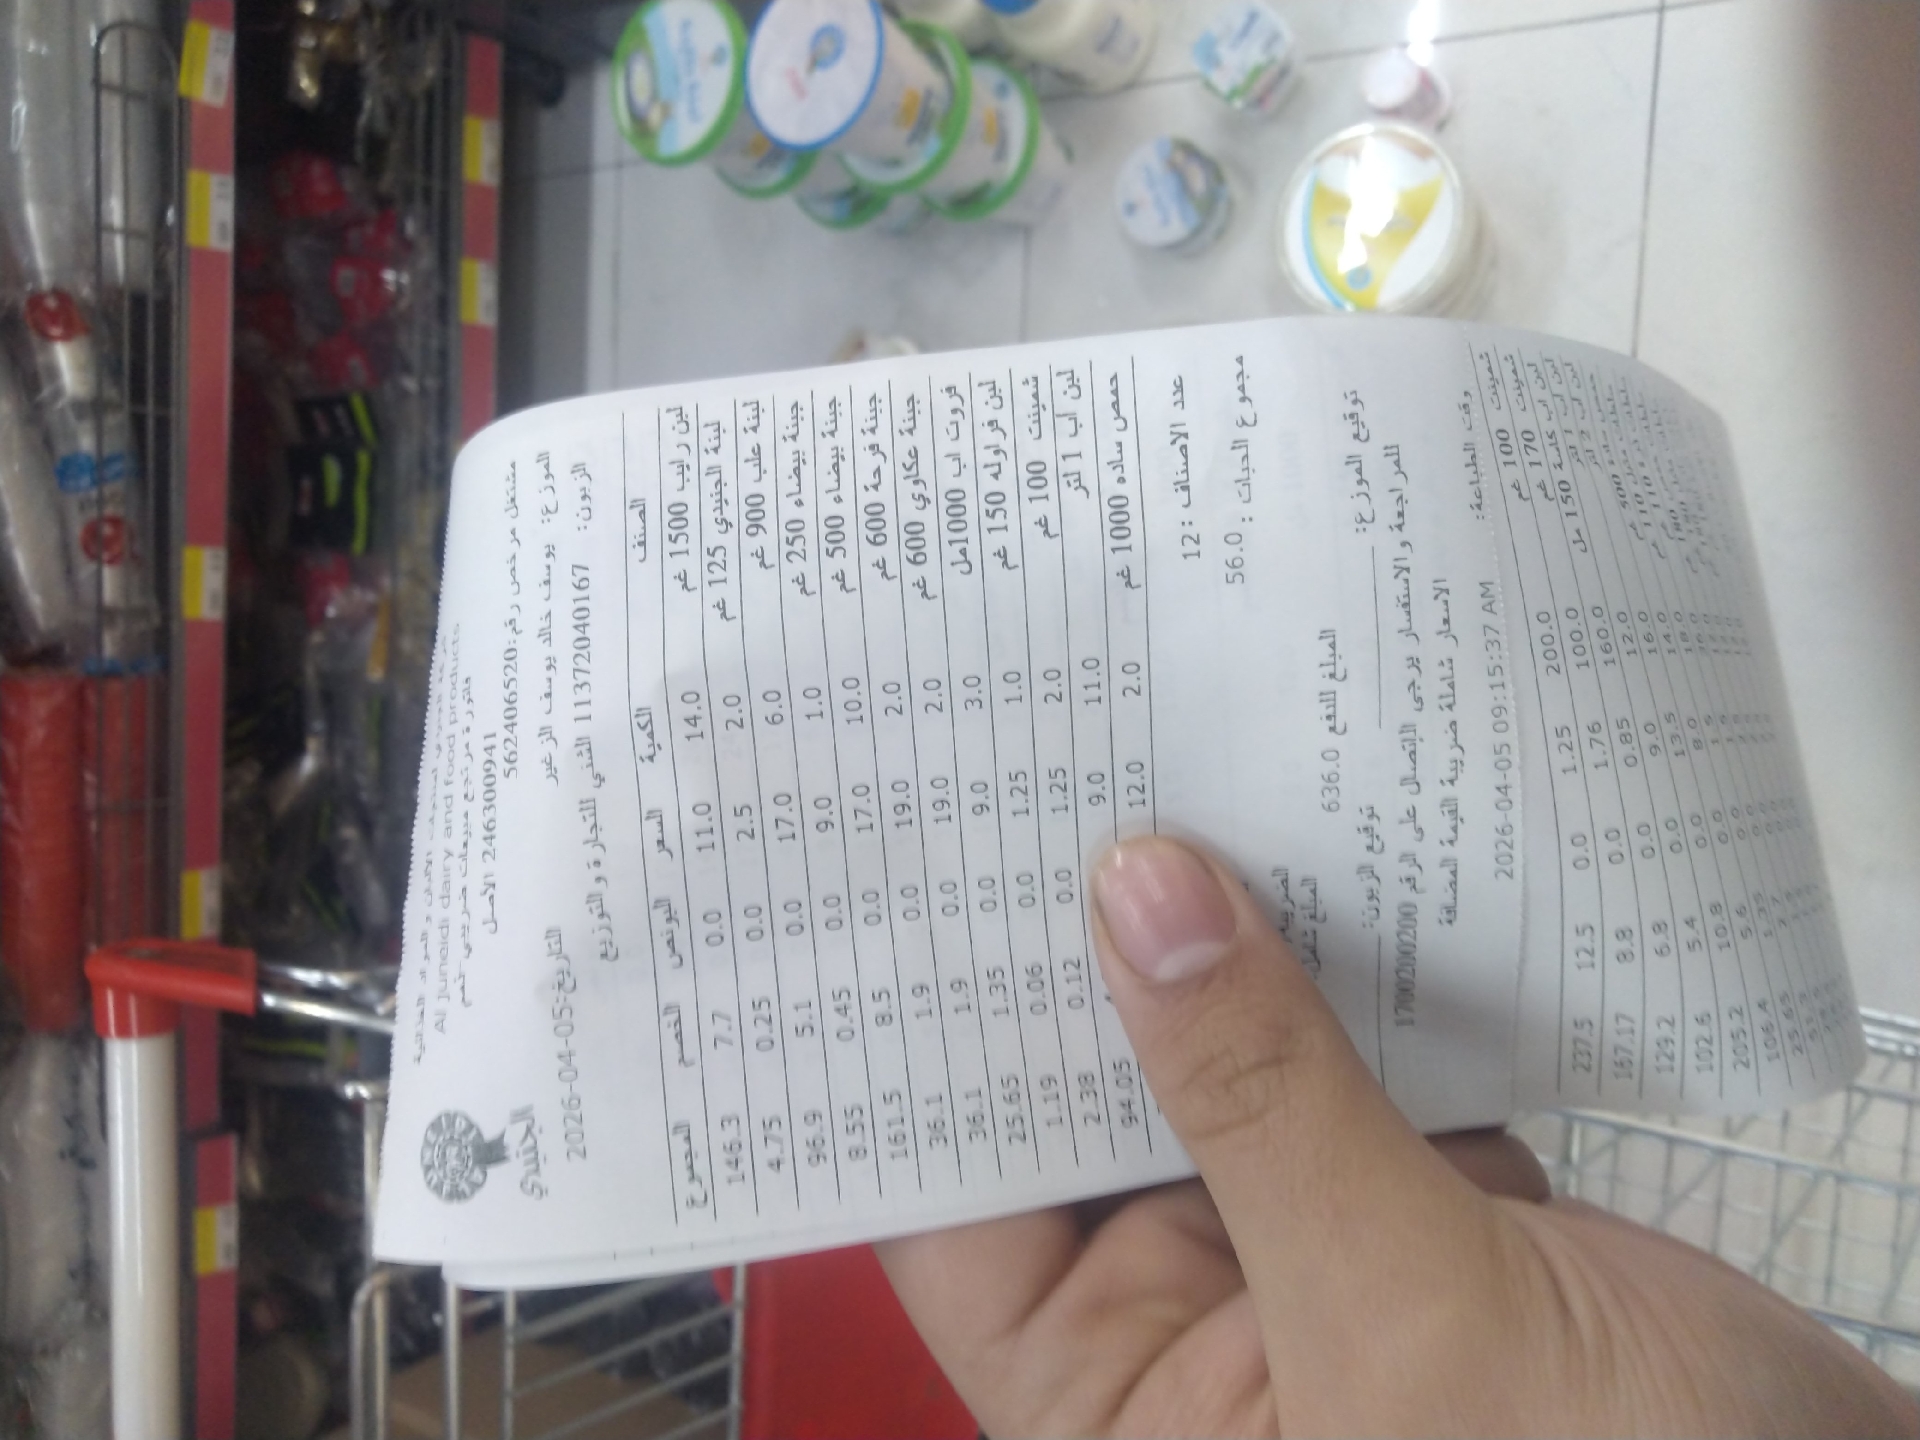 Al Junaidi dairy and food products
فاتورة مرتجع مبيعات ضريبي خصم
مشتغل مرخص رقم: 562406520
246300941 الأصل
الجنيدي
الموزع: يوسف خالد يوسف الزغير
التاريخ: 2026-04-05
الزبون: 1137204​0167 الشني للتجارة والتوزيع
الصنف الكمية السعر البونص الخصم المجموع
لبن رايب 1500 غم 14.0 11.0 0.0 7.7 146.3
لبنة الجنيدي 125 غم 2.0 2.5 0.0 0.25 4.75
لبنة علب 900 غم 6.0 17.0 0.0 5.1 96.9
جبنة بيضاء 250 غم 1.0 9.0 0.0 0.45 8.55
جبنة بيضاء 500 غم 10.0 17.0 0.0 8.5 161.5
جبنة فرحة 600 غم 2.0 19.0 0.0 1.9 36.1
جبنة عكاوي 600 غم 2.0 19.0 0.0 1.9 36.1
فروت اب 1000مل 3.0 9.0 0.0 1.35 25.65
لبن فراوله 150 غم 1.0 1.25 0.0 0.06 1.19
شمينت 100 غم 2.0 1.25 0.0 0.12 2.38
لبن اب 1 لتر 11.0 9.0 94.05
حمص ساده 1000 غم 2.0 12.0
عدد الاصناف : 12
مجموع الحبات : 56.0
المبلغ للدفع 636.0
توقيع الموزع: توقيع الزبون:
للمراجعة و الاستفسار يرجى الإتصال على الرقم 1700200200
الاسعار شاملة ضريبة القيمة المضافة
وقت الطباعة: 2026-04-05 09:15:37 AM
شمينت 100 غم 200.0 1.25 0.0 12.5 237.5
شمينت 170 غم 100.0 1.76 0.0 8.8 167.17
160.0 0.85 0.0 6.8 129.2
12.0 9.0 0.0 5.4 102.6
16.0 13.5 0.0 10.8 205.2
14.0 8.0 0.0 5.6 106.4